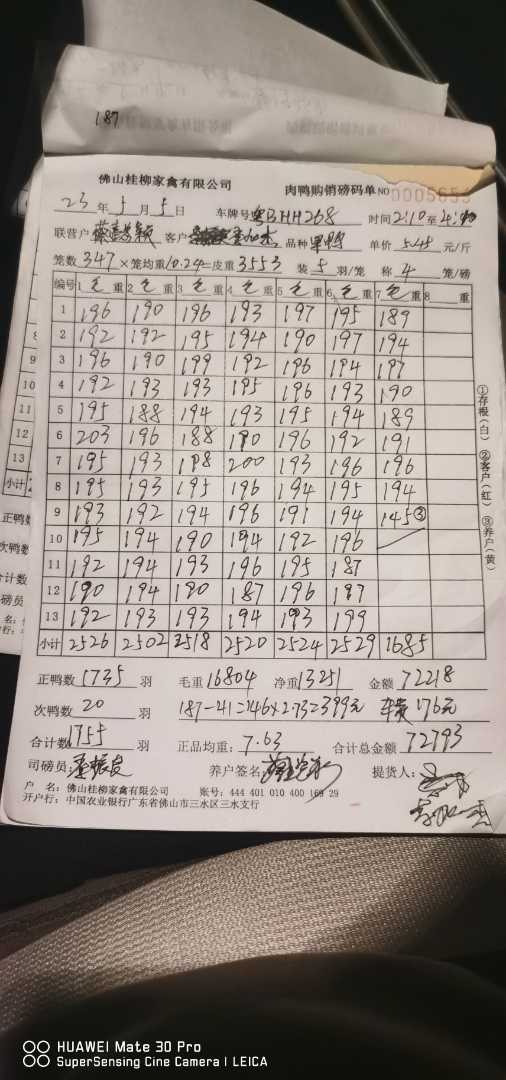 187
佛山桂柳家禽有限公司 肉鸭购销磅码单 NO 0005653
23 年 5 月 5 日 车牌号 粤BHH268 时间 2:10 至 4:40
联营户 客户 品种 单价 5.45 元/斤
笼数 347 ×笼均重 10.24 =皮重 3553 装 5 羽/笼 称 4 笼/磅
编号 1 毛 重 2 毛 重 3 毛 重 4 毛 重 5 毛 重 6 毛 重 7 毛 重 8 重
1 196 190 196 193 197 195 189
2 192 192 195 194 190 197 194
3 196 190 199 192 196 194 197
4 192 193 193 195 196 193 190
5 195 188 194 193 195 194 189
6 203 196 188 190 196 192 191
7 195 193 198 200 193 196 196
8 195 193 195 196 194 195 194
9 193 192 194 196 191 194 145③
10 195 194 190 194 192 196
11 192 194 193 196 195 187
12 190 194 190 187 196 197
13 192 193 193 194 193 199
小计 2526 2502 2518 2520 2524 2529 1685
①存根(白) ②客户(红) ③养户(黄)
正鸭数 1735 羽 毛重 16804 净重 13251 金额 72218
次鸭数 20 羽 187-41=146×2.73=399元 车费176元
合计数 1755 羽 正品均重: 7.63 合计总金额 72793
司磅员: 养户签名: 提货人:
户 名: 佛山桂柳家禽有限公司 账号: 444 401 010 400 169 29
开户行: 中国农业银行广东省佛山市三水区三水支行
9
10
11
12
13
小计
正鸭数
次鸭数
合计数
司磅员
HUAWEI Mate 30 Pro
SuperSensing Cine Camera | LEICA